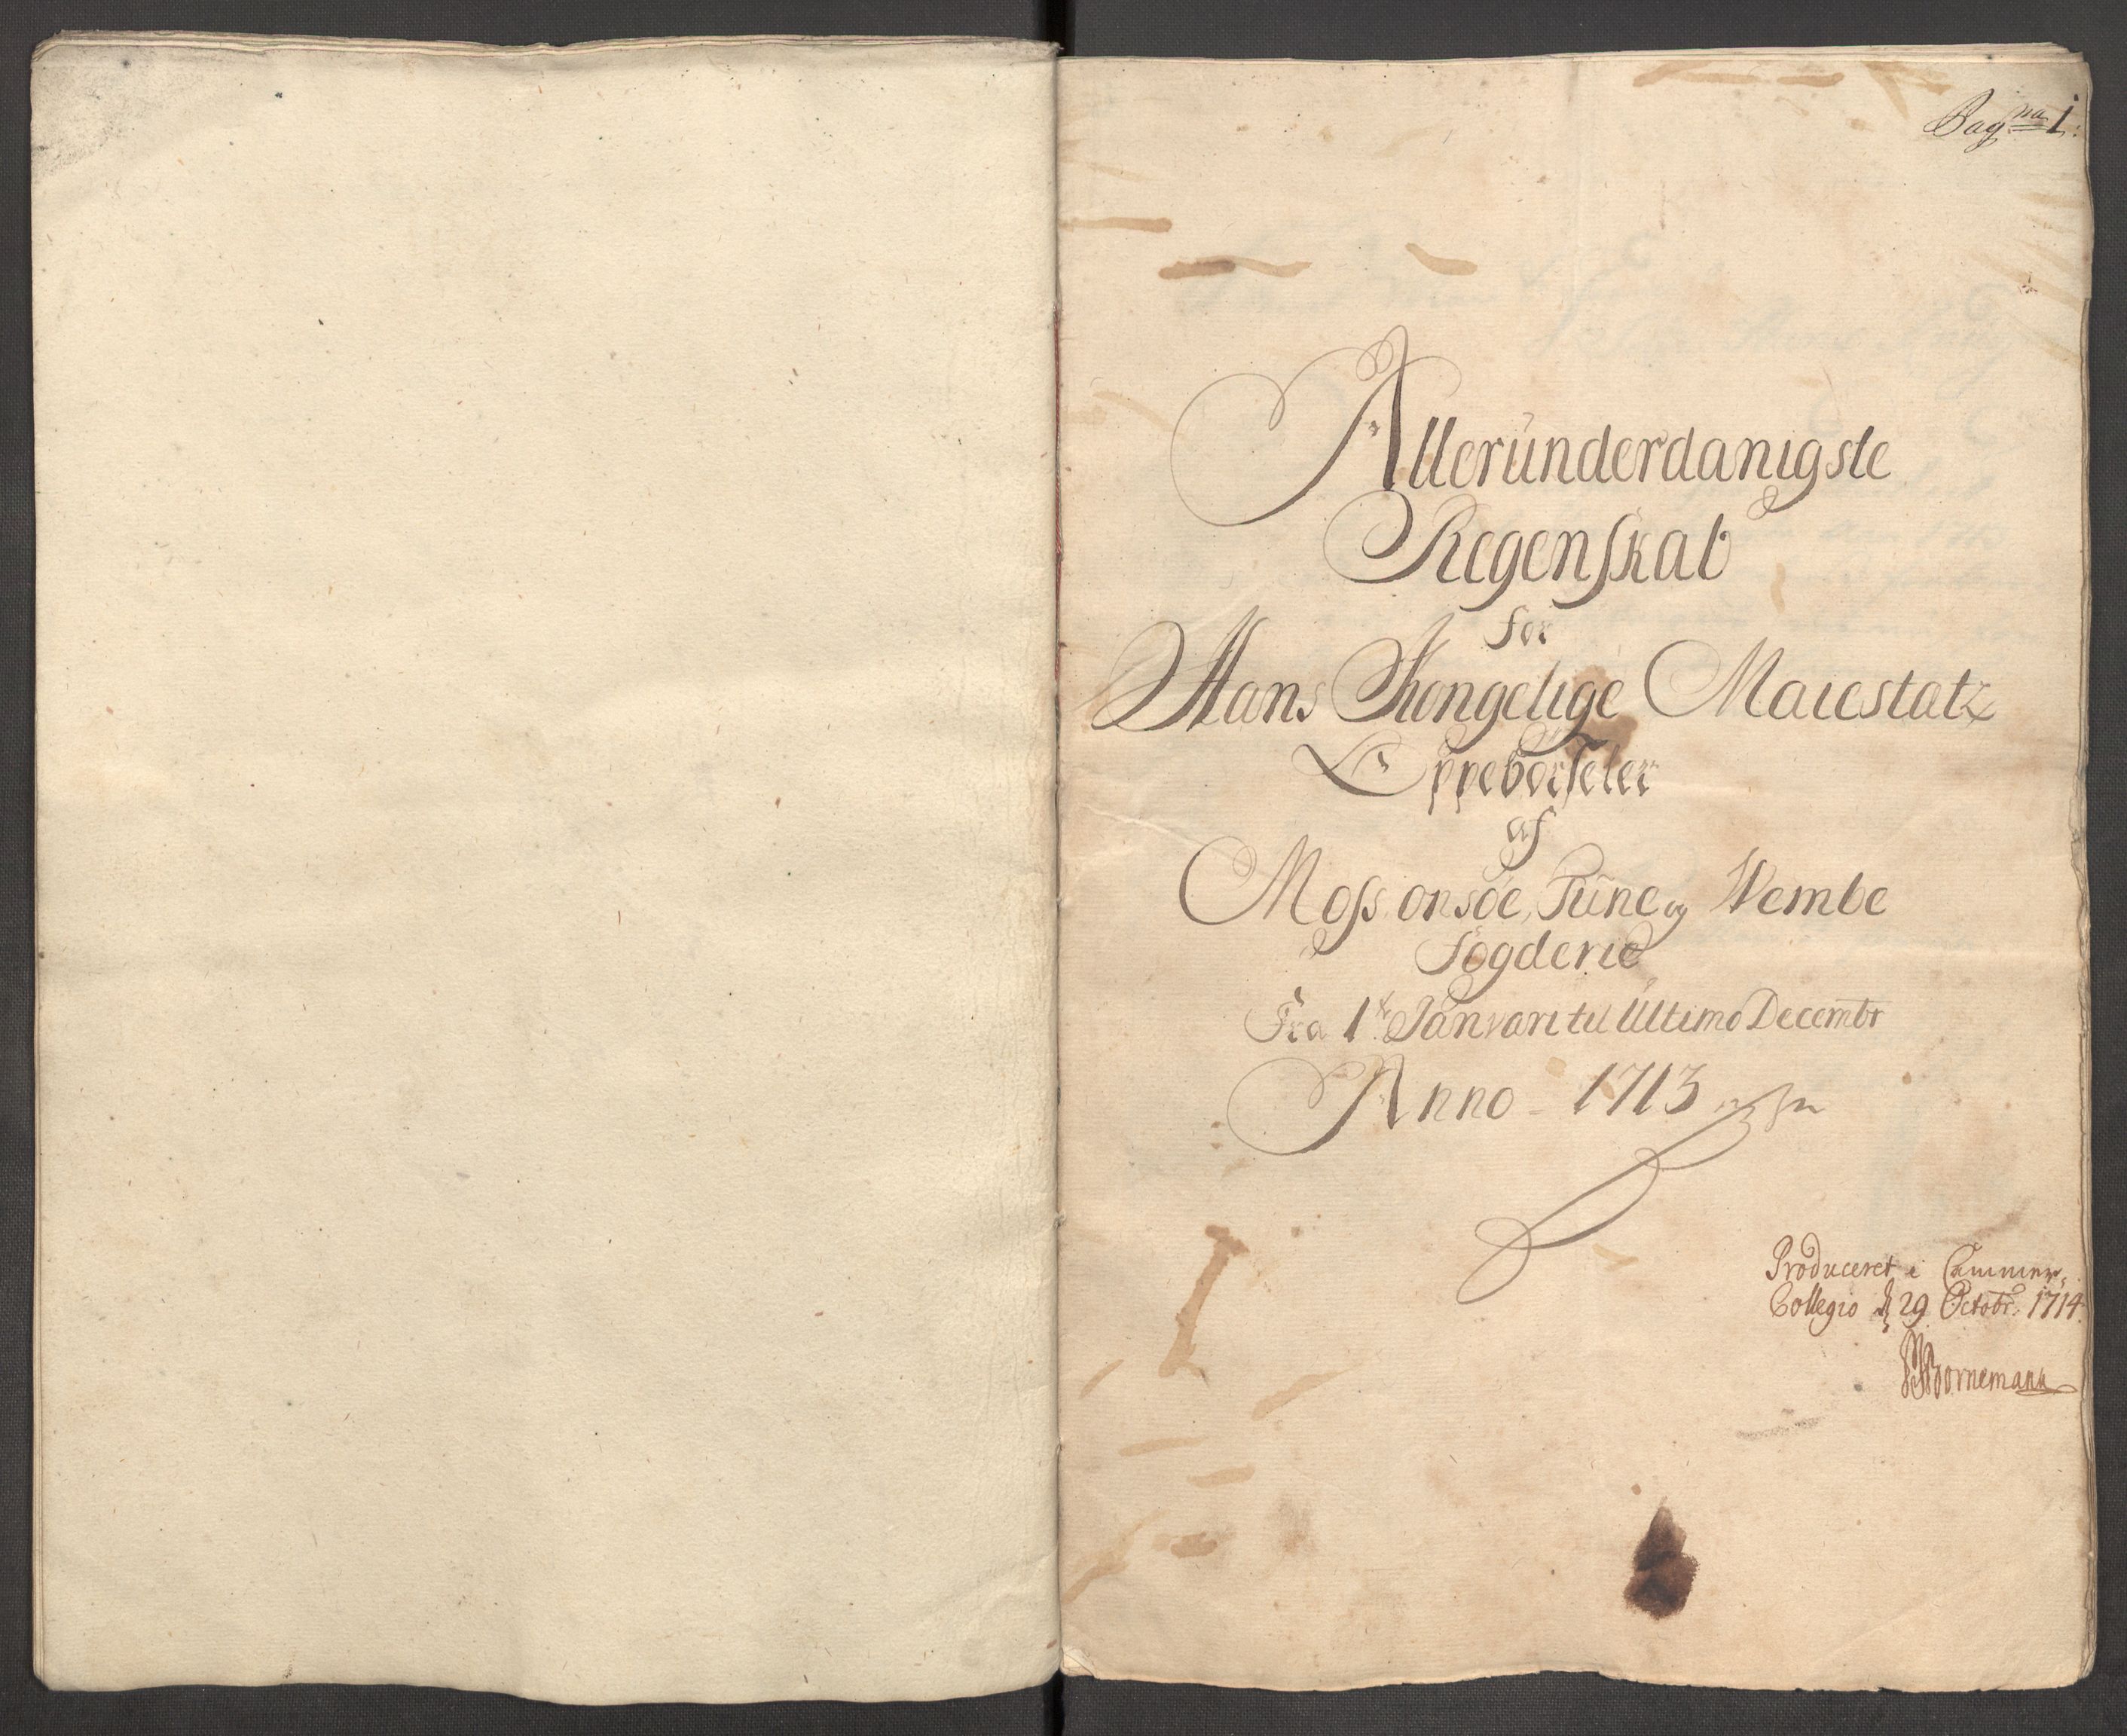 Pag na 1:
Alleründerdanigste
Regenskab
for
Hans Kongelige Maiestatz
Oppebørseler
af
Moss. onsøe, Tüne og Wembe
Fogderie
Fra 1t Janvari til Ultimo Decembr
Anno - 1713
Produceret i Cammer-
Collegio d 29 Octobr: 1714.
Bornemann